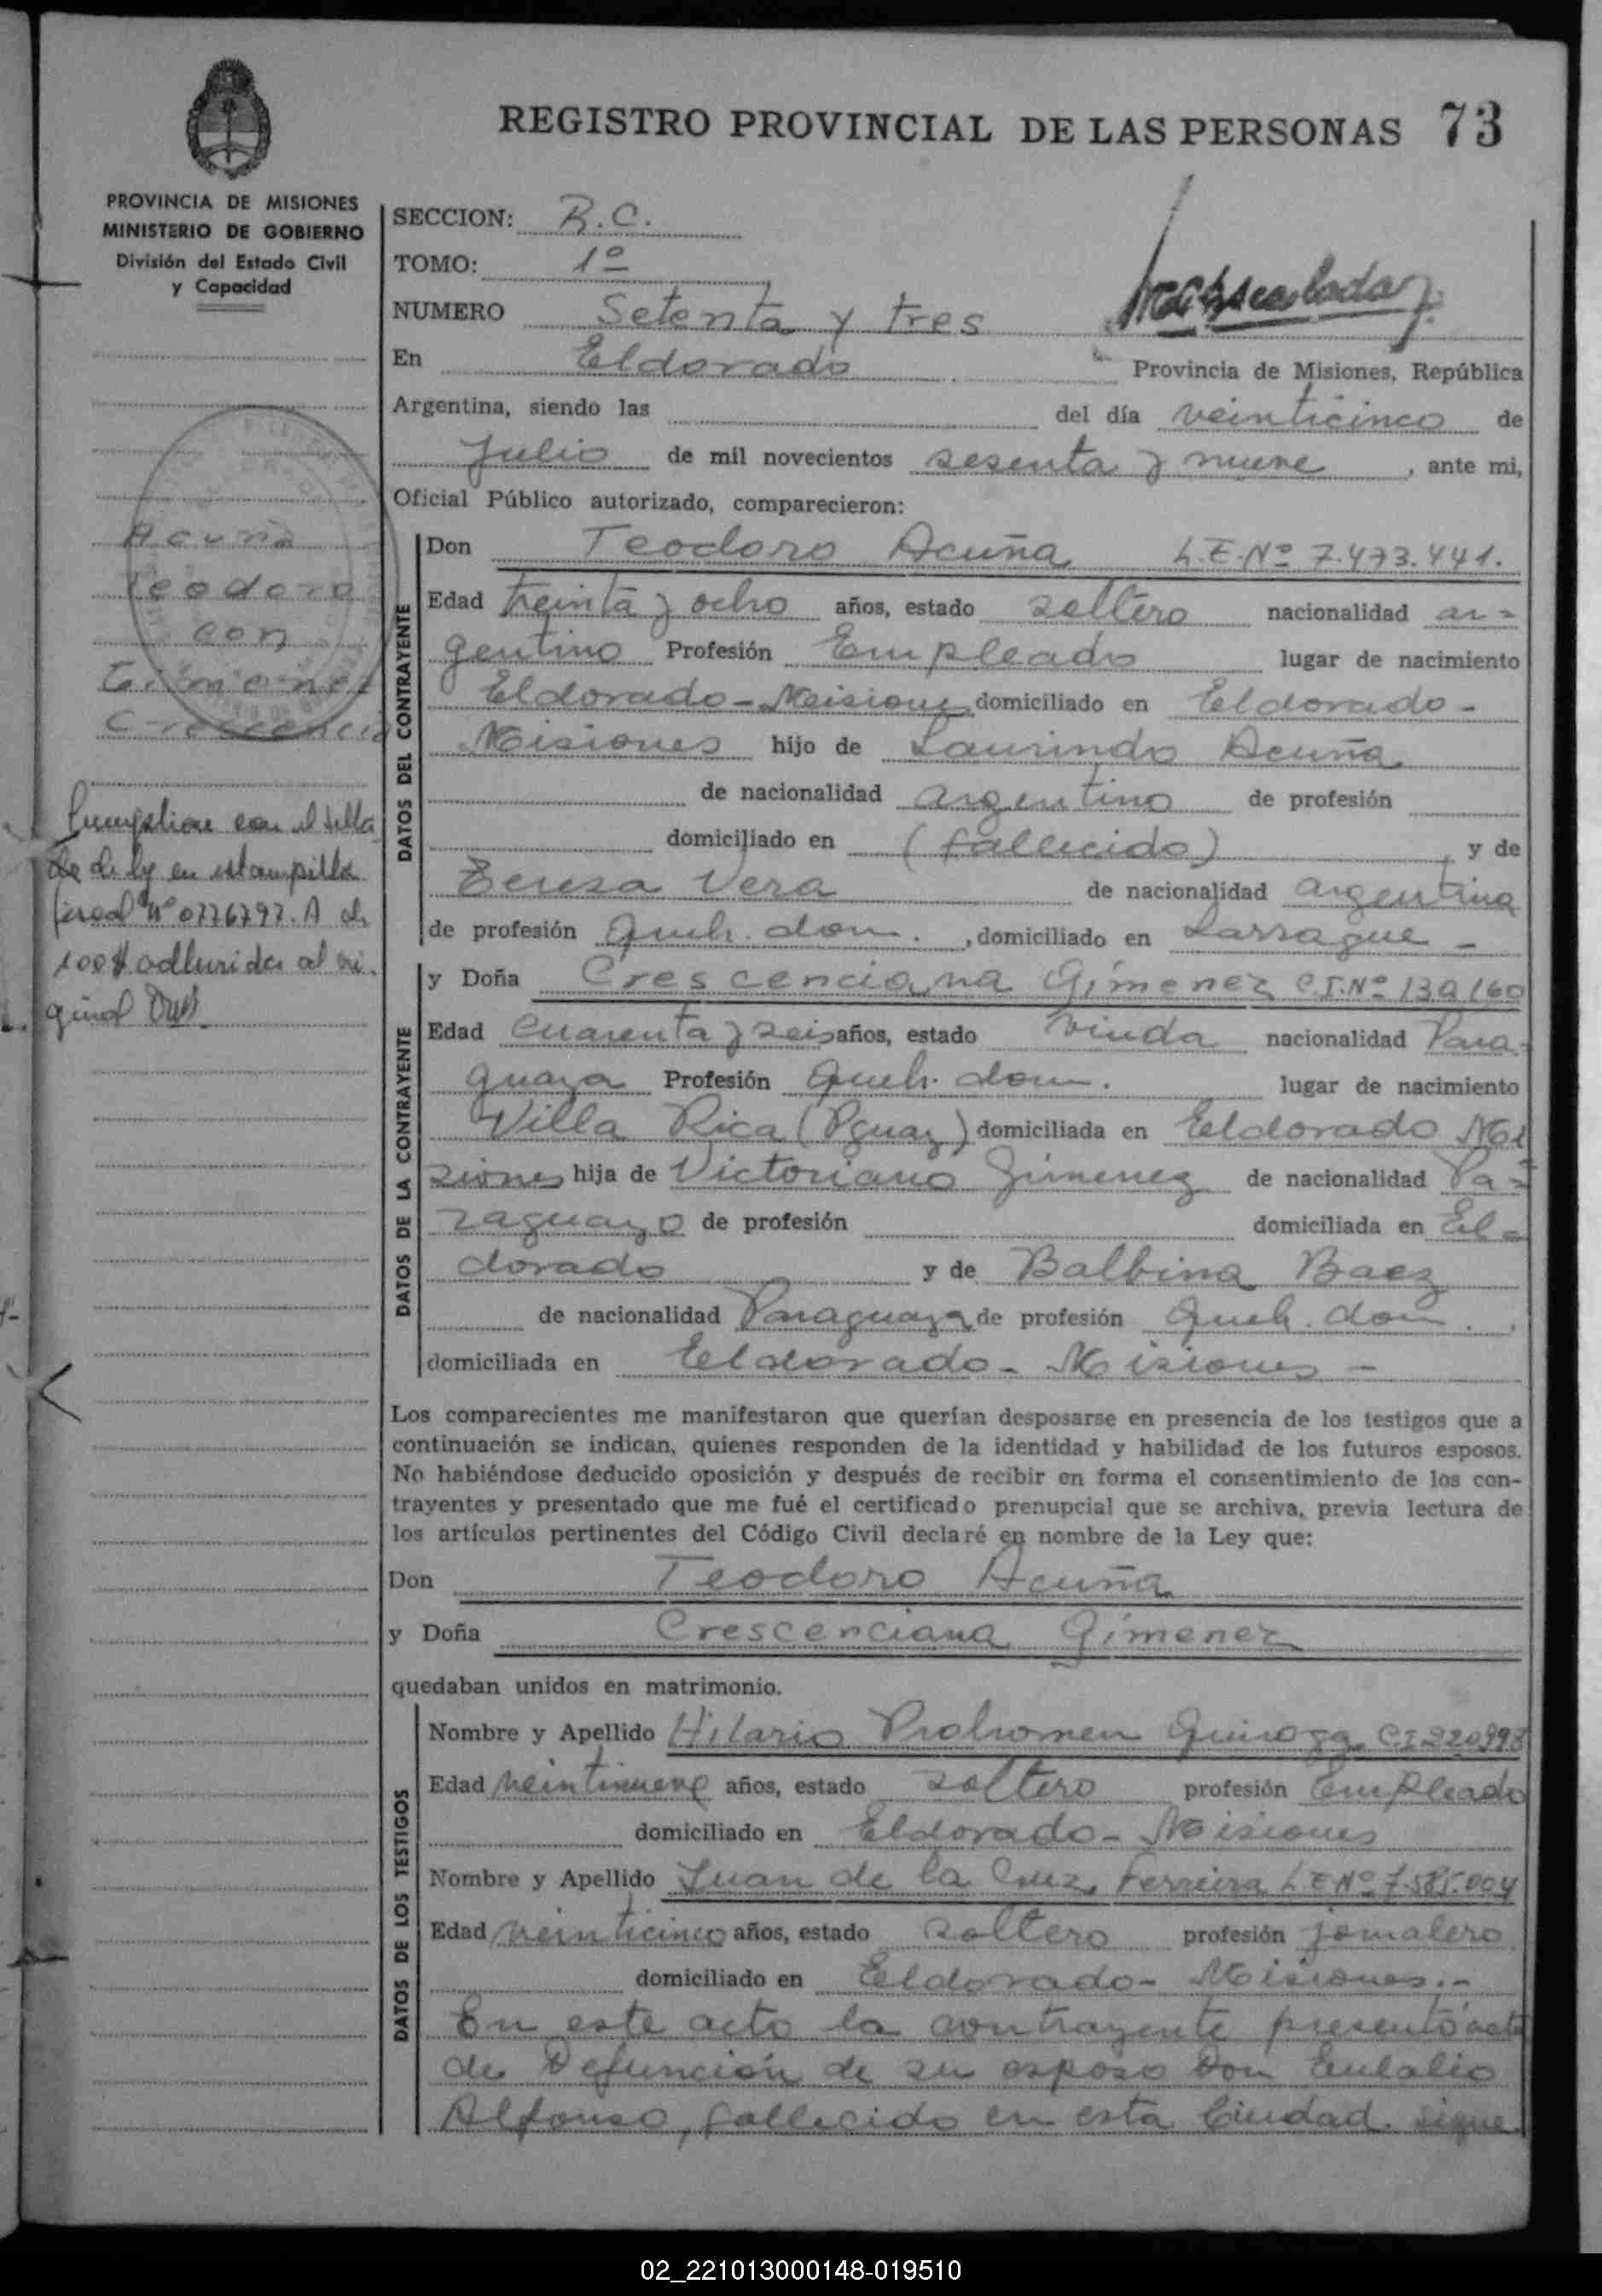 REGISTRO PROVINCIAL DE LAS PERSONAS 73
PROVINCIA DE MISIONES
MINISTERIO DE GOBIERNO
División del Estado Civil
y Capacidad
SECCION: R.C.
TOMO: 1º
NUMERO Setenta y tres
En Eldorado Provincia de Misiones, República
Argentina, siendo las del día veinticinco de
Julio de mil novecientos sesenta y nueve, ante mi,
Oficial Público autorizado, comparecieron:
Acuña
Teodoro
con
Gimenez
DATOS DEL CONTRAYENTE
Don Teodoro Acuña L.E.Nº 7.473.441.
Edad treinta y ocho años, estado soltero nacionalidad ar=
gentino Profesión Empleado lugar de nacimiento
Eldorado - Misiones domiciliado en Eldorado -
Misiones hijo de Laurindo Acuña
de nacionalidad argentino de profesión
domiciliado en (fallecido) y de
Teresa Vera de nacionalidad argentina
de profesión Queh. dom., domiciliado en Larrague -
en estampilla
fiscal Nº 0776797. A de
100$ al ori
ginal
DATOS DE LA CONTRAYENTE
y Doña Crescenciana Gimenez C.I.Nº 130160
Edad cuarenta y seis años, estado viuda nacionalidad Para-
guaya Profesión Queh. dom. lugar de nacimiento
Villa Rica (Pguay) domiciliada en Eldorado Mi
siones hija de Victoriano Gimenez de nacionalidad Pa=
raguayo de profesión domiciliada en El=
dorado y de Balbina Baez
de nacionalidad Paraguaya de profesión Queh. dom.
domiciliada en Eldorado - Misiones -
Los comparecientes me manifestaron que querían desposarse en presencia de los testigos que a
continuación se indican, quienes responden de la identidad y habilidad de los futuros esposos.
No habiéndose deducido oposición y después de recibir en forma el consentimiento de los con-
trayentes y presentado que me fué el certificado prenupcial que se archiva, previa lectura de
los artículos pertinentes del Código Civil declaré en nombre de la Ley que:
Don Teodoro Acuña
y Doña Crescenciana Gimenez
quedaban unidos en matrimonio.
DATOS DE LOS TESTIGOS
Nombre y Apellido Hilario Quiroga C.I 220998
Edad veintinueve años, estado soltero profesión Empleado
domiciliado en Eldorado - Misiones
Nombre y Apellido Juan de la Cruz Ferreira L.E Nº 7.585.004
Edad veinticinco años, estado soltero profesión jornalero
domiciliado en Eldorado - Misiones.-
En este acto la contrayente presentó acta
de Defunción de su esposo Don Eulalio
Alfonso, fallecido en esta Ciudad. sigue
02_221013000148-019510